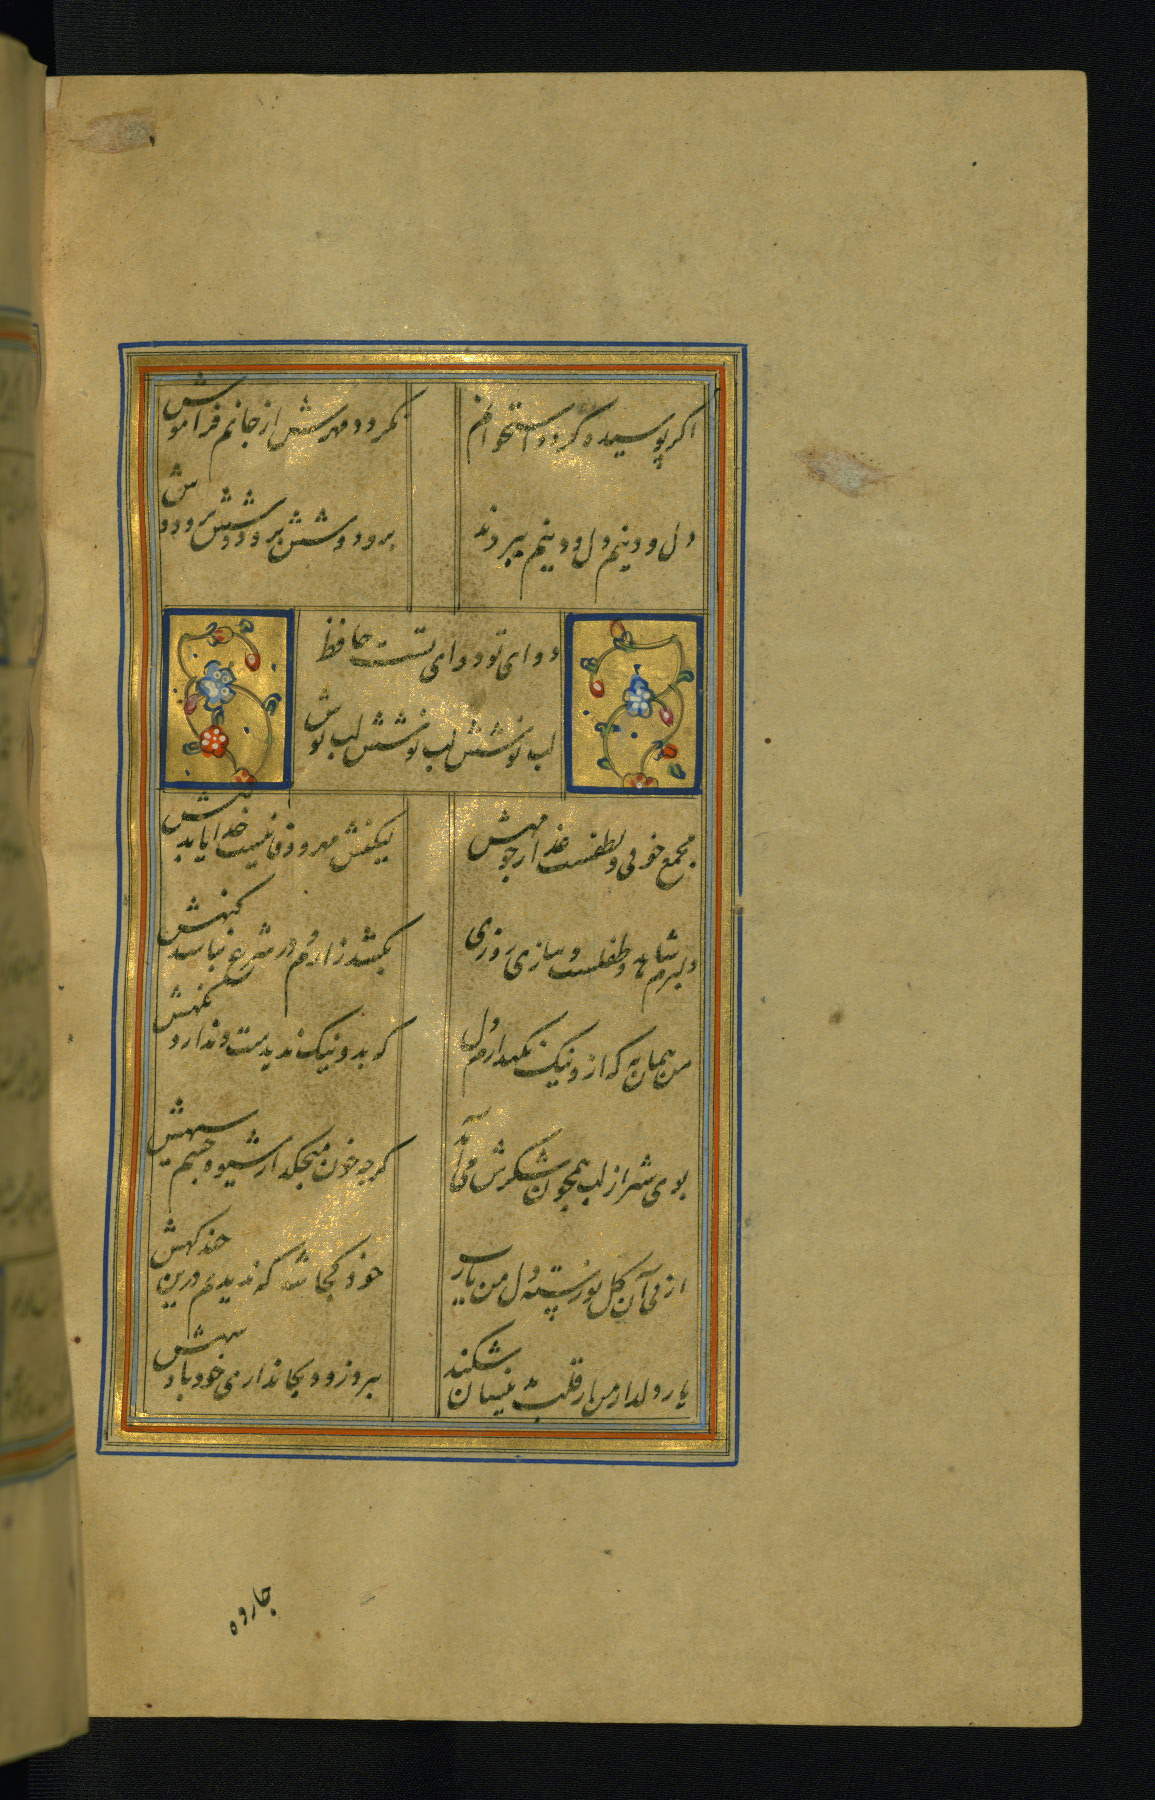 اکر پوسیده کردد استخوانم
نکردد مهرش از جانم فراموش
دل و دینم دل و دینم ببردند
بر و دوشش بر و دوشش بر و دوش
دوای تو دوای تست حافظ
لب نوشش لب نوشش لب نوش
مجمع خوبی و لطفست عذار چو مهش
لیکنش مهر و وفا نیست خدایا بدهش
دلبرم شاهد و طفلست و ببازی روزی
بکشد زارم و در شرع نباشد کنهش
من همان به که ازو نیک نکهدارم دل
که بد و نیک ندیدست و ندارد نکهش
بوی شیر از لب همچون شکرش می آید
کرچه خون میچکد از شیوه چشم سیهش
از پی آن کل نورسته دل من یارب
خود کجا شد که ندیدیم درین چند کهش
یار دلدار من ار قلب بدینسان شکند
ببرد زود بجانداری خود باد شهش
چارده